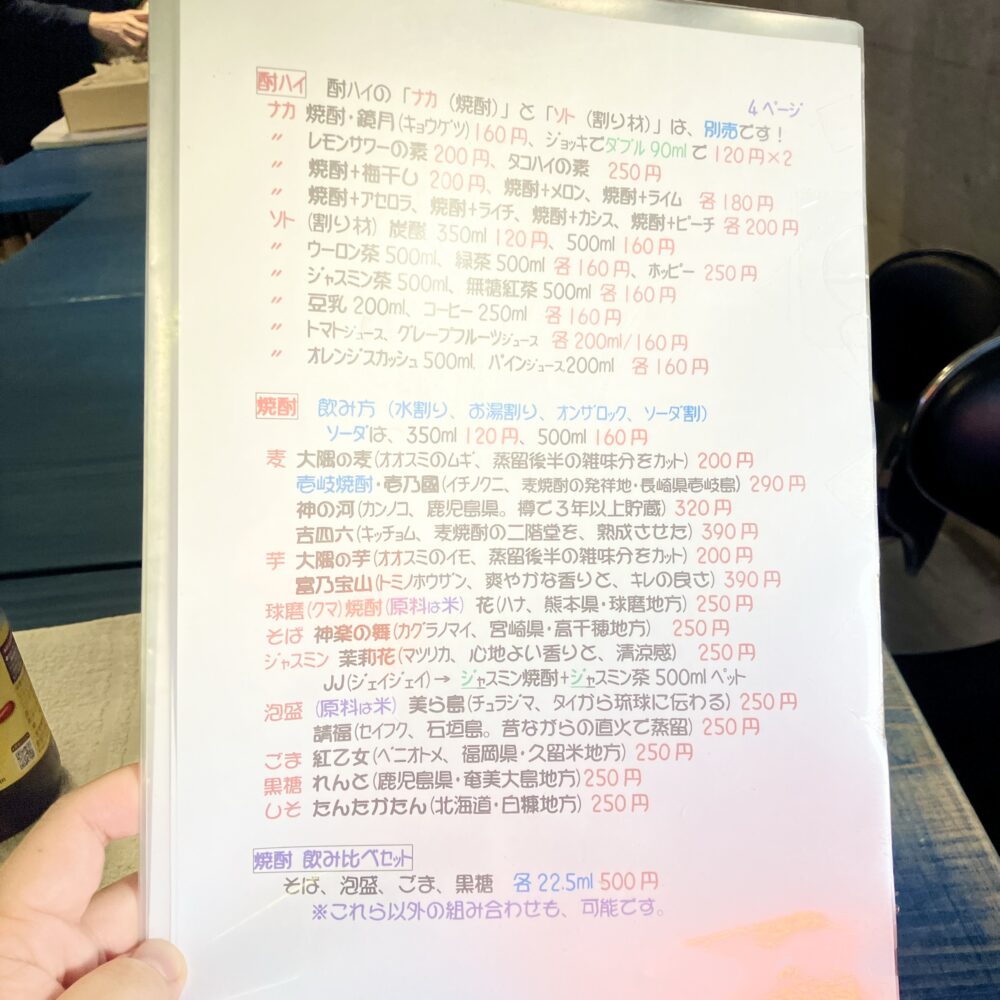 4ページ
酎ハイ 酎ハイの「ナカ(焼酎)」と「ソト(割り材)」は、別売です!
ナカ 焼酎・鏡月(キョウゲツ)160円、ジョッキでダブル90mlで120円×2
〃 レモンサワーの素200円、タコハイの素 250円
〃 焼酎+梅干し 200円、焼酎+メロン、焼酎+ライム 各180円
〃 焼酎+アセロラ、焼酎+ライチ、焼酎+カシス、焼酎+ピーチ 各200円
ソト (割り材) 炭酸 350ml 120円、500ml 160円
〃 ウーロン茶500ml、緑茶500ml 各160円、ホッピー 250円
〃 ジャスミン茶500ml、無糖紅茶500ml 各160円
〃 豆乳200ml、コーヒー250ml 各160円
〃 トマトジュース、グレープフルーツジュース 各200ml/160円
〃 オレンジスカッシュ500ml. パインジュース200ml 各160円
焼酎 飲み方(水割り、お湯割り、オンザロック、ソーダ割)
ソーダは、350ml 120円、500ml 160円
麦 大隅の麦(オオスミのムギ、蒸留後半の雑味分をカット) 200円
壱岐焼酎・壱乃國(イチノクニ、麦焼酎の発祥地・長崎県壱岐島) 290円
神の河(カンノコ、鹿児島県。樽で3年以上貯蔵) 320円
吉四六(キッチョム、麦焼酎の二階堂を、熟成させた) 390円
芋 大隅の芋(オオスミのイモ、蒸留後半の雑味分をカット) 200円
富乃宝山(トミノホウザン、爽やかな香りと、キレの良さ) 390円
球磨(クマ)焼酎(原料は米) 花(ハナ、熊本県・球磨地方) 250円
そば 神楽の舞(カグラノマイ、宮崎県・高千穂地方) 250円
ジャスミン 茉莉花(マツリカ、心地よい香りと、清涼感) 250円
JJ(ジェイジェイ)→ ジャスミン焼酎+ジャスミン茶500mlペット
泡盛 (原料は米) 美ら島(チュラジマ、タイから琉球に伝わる) 250円
請福(セイフク、石垣島。昔ながらの直火で蒸留) 250円
ごま 紅乙女(ベニオトメ、福岡県・久留米地方) 250円
黒糖 れんと(鹿児島県・奄美大島地方) 250円
しそ たんたかたん(北海道・白糠地方) 250円
焼酎 飲み比べセット
そば、泡盛、ごま、黒糖 各22.5ml 500円
※これら以外の組み合わせも、可能です。